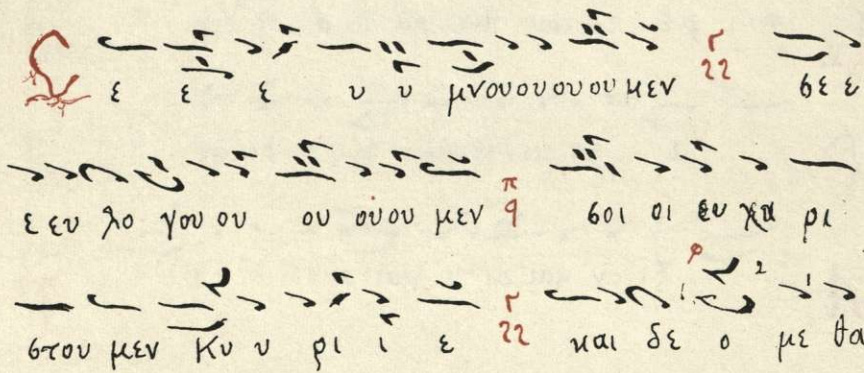 Σ ε ε ε υ υ μνουουουουμεν σε ε
ε ευ λο γου ου ου ουου μεν π q σοι οι ευ χα ρι
στου μεν Κυ υ ρι ι ε και δε ο με θα